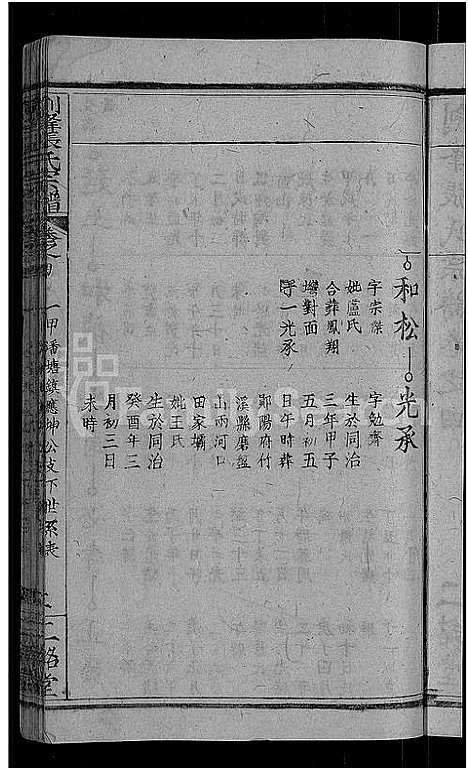 和松
字宗深
妣盧氏
合葬鳳翔
壋對面
子一光承
光承
字勉齋
生於同治
三年甲子
五月初五
日午時葬
鄖陽府竹
溪縣磨盤
山兩河口
田家壩
妣王氏
生於同治
癸酉年三
月初三日
未時
張氏宗譜
卷之四
一甲潘塘鎮應坤公支下世系表